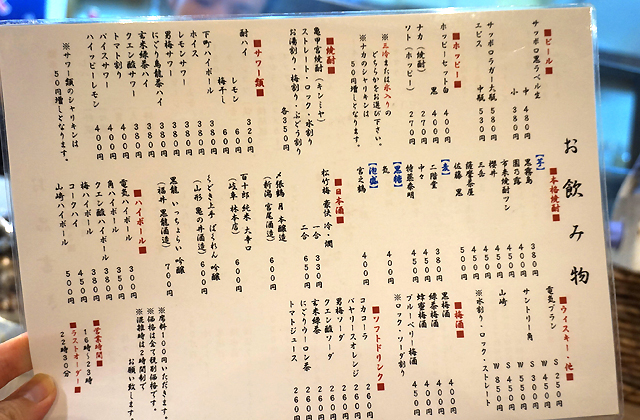 お飲み物
■ビール■
サッポロ黒ラベル生
中 480円
小 380円
サッポロラガー大瓶 580円
エビス 中瓶 550円
■ホッピー■
ホッピーセット白 400円
黒 400円
ナカ(焼酎) 270円
ソト(ホッピー) 270円
※三冷または氷入りの
どちらかをお選び下さい。
※ナカのシャリキンは
50円増しとなります。
■焼酎■
亀甲宮焼酎(キンミヤ)
ストレート・ロック・水割り
お湯割り・梅割り・ぶどう割り
各350円
■サワー類■
酎ハイ 320円
レモン
梅干し
下町ハイボール 380円
ホイス 380円
レモンサワー 380円
男梅サワー 380円
にごり烏龍茶ハイ 380円
玄米緑茶ハイ 380円
クエン酸サワー 380円
トマト割り 400円
バイスサワー 400円
ハイッピーレモン 400円
※サワー類のシャリキンは
50円増しとなります。
■本格焼酎■
【芋】
黒霧島 380円
園乃露 400円
市来焼酎ツシ 450円
櫻井 450円
三岳 450円
薩摩茶屋 450円
佐藤 黒 500円
【麦】
二階堂 380円
中々 450円
特蒸泰明 450円
【黒糖】
気 400円
【泡盛】
宮之鶴 400円
■日本酒■
松竹梅 豪快 冷・燗
一合 330円
二合 650円
〆張鶴 月 本醸造 600円
(新潟 宮尾酒造)
百十郎 純米 大辛口 600円
(岐阜 林本店)
くどき上手 ばくれん 吟醸
(山形 亀の井酒造) 600円
黒龍 いっちょらい 吟醸
(福井 黒龍酒造) 700円
■ハイボール■
電気ハイボール 300円
角ハイボール 350円
クエン酸ハイボール 380円
梅ハイボール 450円
コークハイ 450円
山崎ハイボール 500円
■ウィスキー・他■
電気ブラン S 250円
サントリー角 S 300円
W 450円
山崎 S 550円
W 850円
※水割り・ロック・ストレート
■梅酒■
黒梅酒 400円
緑茶梅酒 400円
蜂蜜梅酒 400円
ブルーベリー梅酒 450円
※ロック・ソーダ割り
■ソフトドリンク■
コカコーラ 260円
バヤリースオレンジ 260円
男梅ソーダ 260円
クエン酸ソーダ 260円
玄米緑茶 260円
にごりウーロン茶 260円
トマトジュース 260円
※席料100円いただきます。
※価格は全て税別価格です。
※混雑時は2時間制で
お願い致します。
■営業時間■
16時〜23時
■ラストオーダー■
22時30分